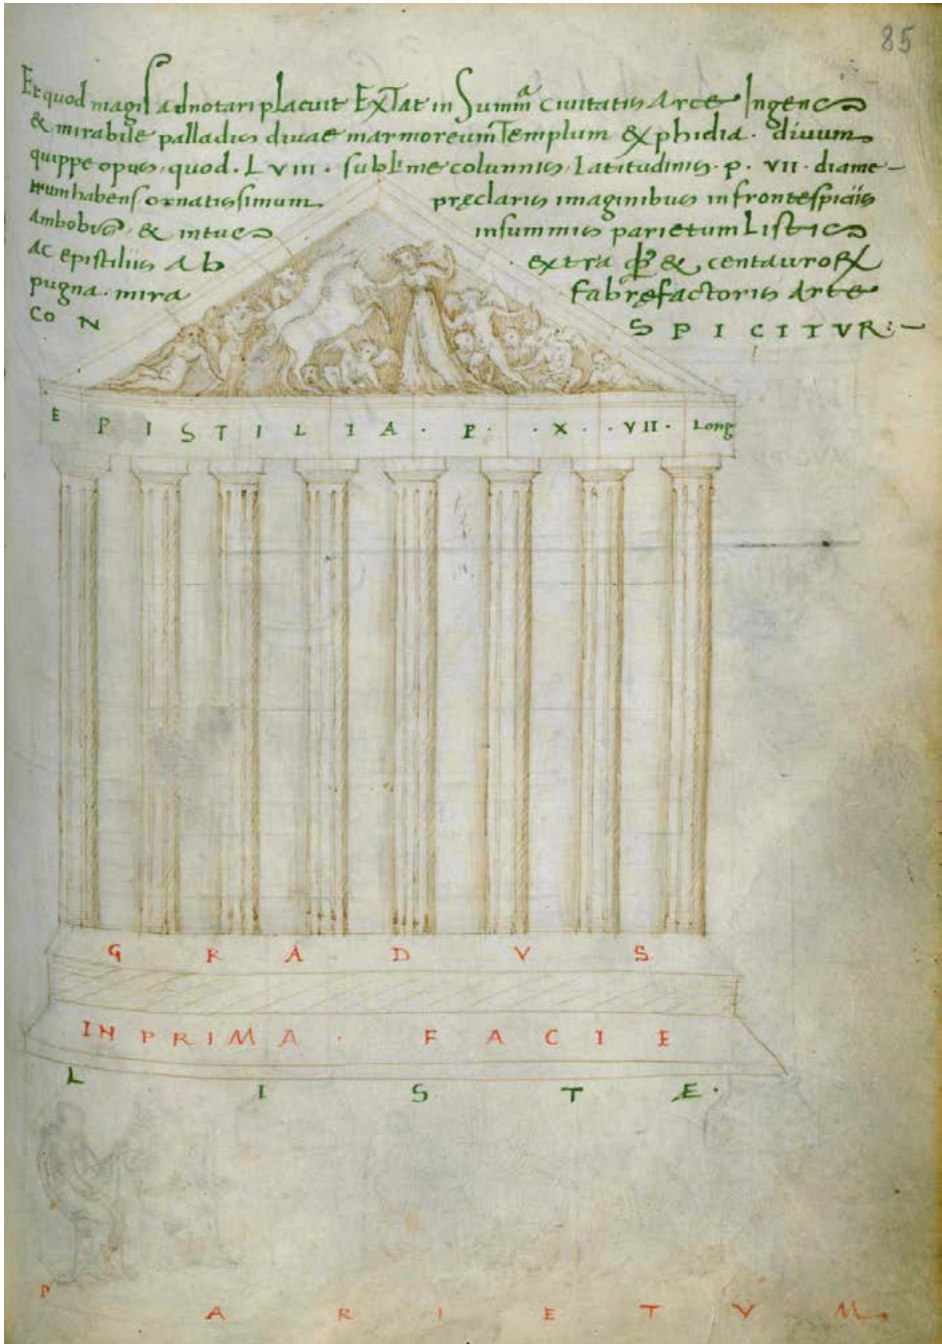 85
Et quod magis adnotari placuit ExTat in Summa civitatis Arce Ingens
& mirabile palladis divae marmoreum Templum & phidia. divum
quippe opus, quod. LVIII. sublime columnis, Latitudinis. p. VII. diame-
trum habens ornatissimum. pręclaris imaginibus in frontespiciis
Ambobus, & intus in summis parietum Listis
AC epistiliis Ab extra & centauro℞
pugna. mira fabręfactoris Arte
CON SPICITVR:-
EPISTILIA. P. .X. .VII. Long
GRADVS
IN PRIMA. FACIE
LISTÆ.
PARIETVM.